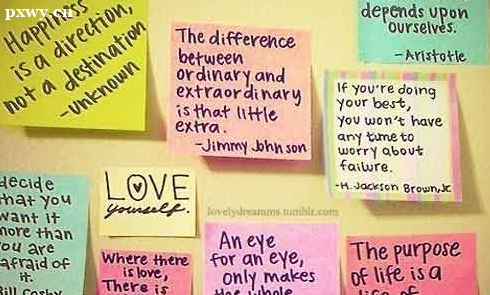 pxwy.cn
Happiness
is a direction,
not a destination
-unknown
The difference
between
ordinary and
extraordinary
is that little
extra.
-Jimmy Johnson
depends upon
ourselves.
-Aristotle
If you're doing
your best,
you won't have
any time to
worry about
failure.
-H. Jackson Brown, Jr.
decide
that you
want it
more than
you are
afraid of
it.
Bill Cosby
LOVE
yourself.
lovelydreamms.tumblr.com
Where there
is love,
There is
An eye
for an eye,
only makes
the whole
The purpose
of life is a
life of